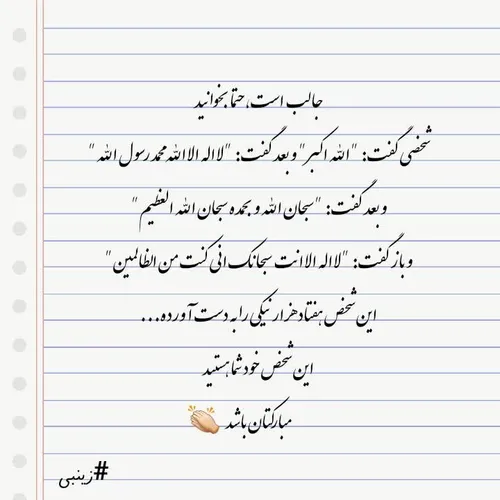 جالب است، حتما بخوانید
شخصی گفت: "الله اکبر" و بعد گفت: "لا اله الا الله محمد رسول الله"
و بعد گفت: "سبحان الله و بحمده سبحان الله العظیم"
و باز گفت: "لا اله الا انت سبحانک انی کنت من الظالمین"
این شخص هفتاد هزار نیکی را به دست آورده...
این شخص خود شما هستید
مبارکتان باشد 👏
#زینبی